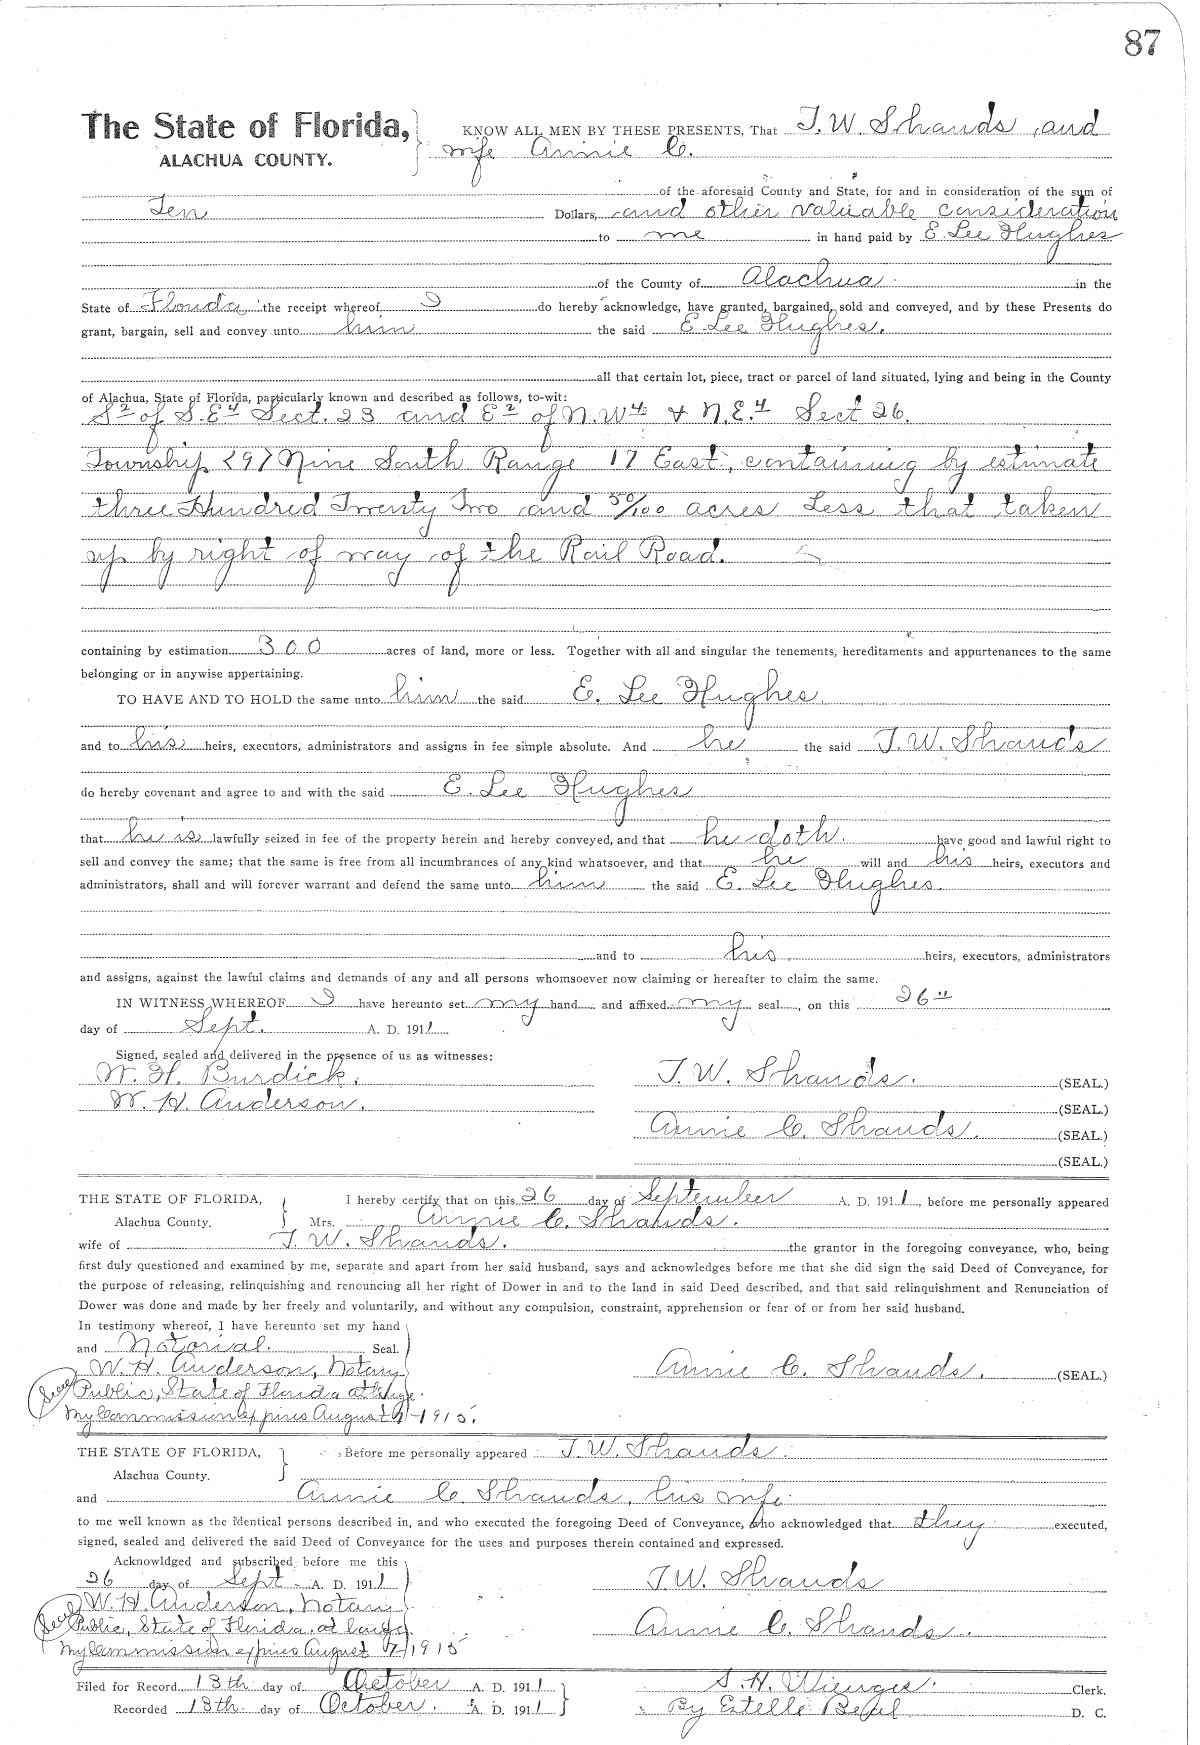 87
The State of Florida, KNOW ALL MEN BY THESE PRESENTS, That T. W. Shands and
ALACHUA COUNTY. wife Annie C.
of the aforesaid County and State, for and in consideration of the sum of
Ten Dollars, and other valuable consideration
to me in hand paid by E. Lee Hughes
of the County of Alachua in the
State of Florida, the receipt whereof I do hereby acknowledge, have granted, bargained, sold and conveyed, and by these Presents do
grant, bargain, sell and convey unto him the said E. Lee Hughes.
all that certain lot, piece, tract or parcel of land situated, lying and being in the County
of Alachua, State of Florida, particularly known and described as follows, to-wit:
S2 of S.E4 Sect. 23 and E2 of N.W4 & N.E.4 Sect 26.
Township <9> Nine South Range 17 East, containing by estimate
three Hundred Twenty Two and 50/100 acres Less that taken
up by right of way of the Rail Road.
containing by estimation 300 acres of land, more or less. Together with all and singular the tenements, hereditaments and appurtenances to the same
belonging or in anywise appertaining.
TO HAVE AND TO HOLD the same unto him the said E. Lee Hughes.
and to his heirs, executors, administrators and assigns in fee simple absolute. And he the said T. W. Shands
do hereby covenant and agree to and with the said E. Lee Hughes
that he is lawfully seized in fee of the property herein and hereby conveyed, and that he doth. have good and lawful right to
sell and convey the same; that the same is free from all incumbrances of any kind whatsoever, and that he will and his heirs, executors and
administrators, shall and will forever warrant and defend the same unto him the said E. Lee Hughes.
and to his heirs, executors, administrators
and assigns, against the lawful claims and demands of any and all persons whomsoever now claiming or hereafter to claim the same.
IN WITNESS WHEREOF I have hereunto set my hand and affixed my seal, on this 26"
day of Sept. A. D. 1911.
Signed, sealed and delivered in the presence of us as witnesses:
W. H. Burdick. T. W. Shands. (SEAL.)
W. H. Anderson. (SEAL.)
Annie C. Shands. (SEAL.)
(SEAL.)
THE STATE OF FLORIDA, I hereby certify that on this 26 day of September A. D. 1911, before me personally appeared
Alachua County. Mrs. Annie C. Shands.
wife of T. W. Shands. the grantor in the foregoing conveyance, who, being
first duly questioned and examined by me, separate and apart from her said husband, says and acknowledges before me that she did sign the said Deed of Conveyance, for
the purpose of releasing, relinquishing and renouncing all her right of Dower in and to the land in said Deed described, and that said relinquishment and Renunciation of
Dower was done and made by her freely and voluntarily, and without any compulsion, constraint, apprehension or fear of or from her said husband.
In testimony whereof, I have hereunto set my hand
and Notorial. Seal.
W. H. Anderson, Notary Annie C. Shands. (SEAL.)
Seal Public, State of Florida at large.
My Commission expires August 7-1915.
THE STATE OF FLORIDA, Before me personally appeared T. W. Shands.
Alachua County.
and Annie C. Shands, his wife.
to me well known as the identical persons described in, and who executed the foregoing Deed of Conveyance, who acknowledged that they executed,
signed, sealed and delivered the said Deed of Conveyance for the uses and purposes therein contained and expressed.
Acknowldged and subscribed before me this
26 day of Sept. A. D. 1911 T. W. Shands
W. H. Anderson, Notary
Seal Public, State of Florida. at large. Annie C. Shands.
My Commission expires August 7-1915
Filed for Record 13th day of October A. D. 1911 S. H. Wienges. Clerk.
Recorded 13th day of October. A. D. 1911 By Estelle D. C.